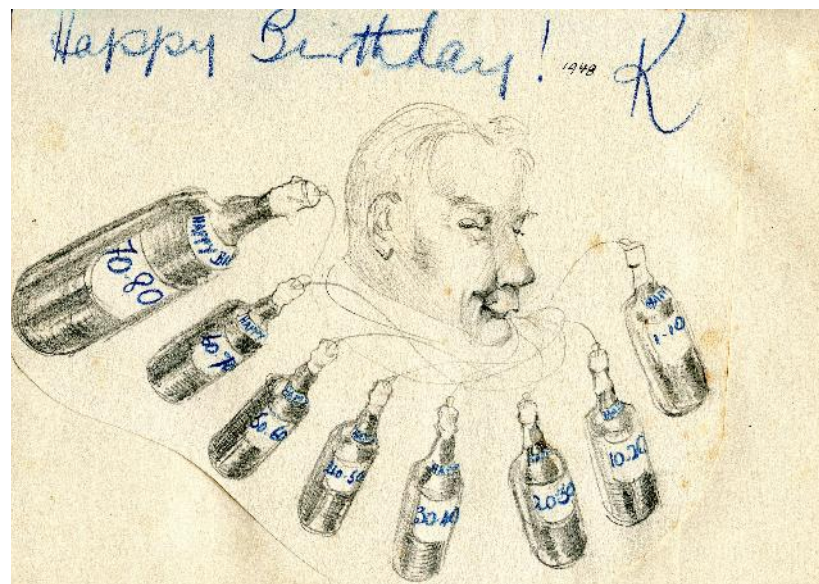 Happy Birthday! 1948 K
HAPPY
70-80
HAPPY
60-70
HAPPY
50-60
HAPPY
40-50
HAPPY
30-40
20-30
10-20
HAPPY
1-10